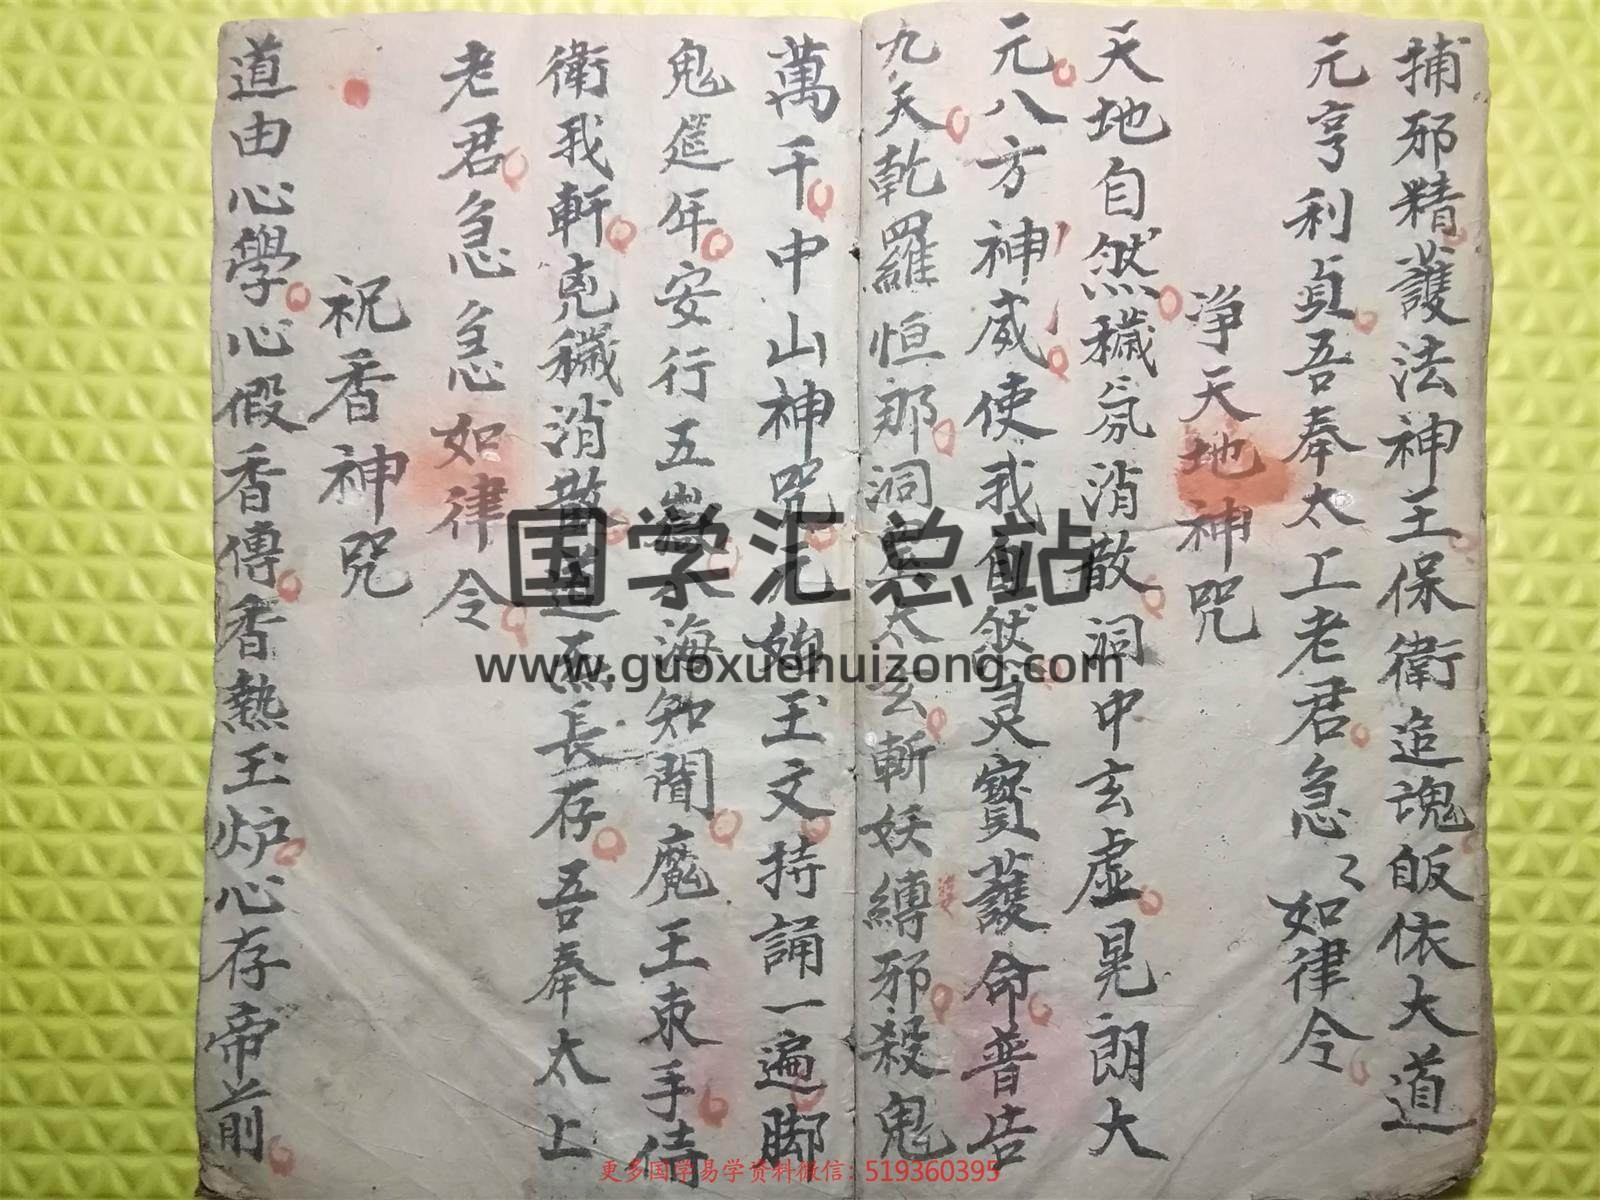 捕邪精護法神王保衛追魂皈依大道
元亨利貞吾奉太上老君急〻如律令
净天地神咒
天地自然穢氛消散洞中玄虛晃朗大
元八方神威使我自然灵寳護命普告
九天乾羅恒那洞太玄斬妖縛邪殺鬼
萬千中山神咒元始玉文持誦一遍脚
鬼筵年安行五嶽海知聞魔王束手侍
衛我軒兇穢消散道炁長存吾奉太上
老君急急如律令
祝香神咒
道由心學心假香傳香熱玉炉心存帝前
国学汇总站
www.guoxuehuizong.com
更多国学易学资料微信: 519360395